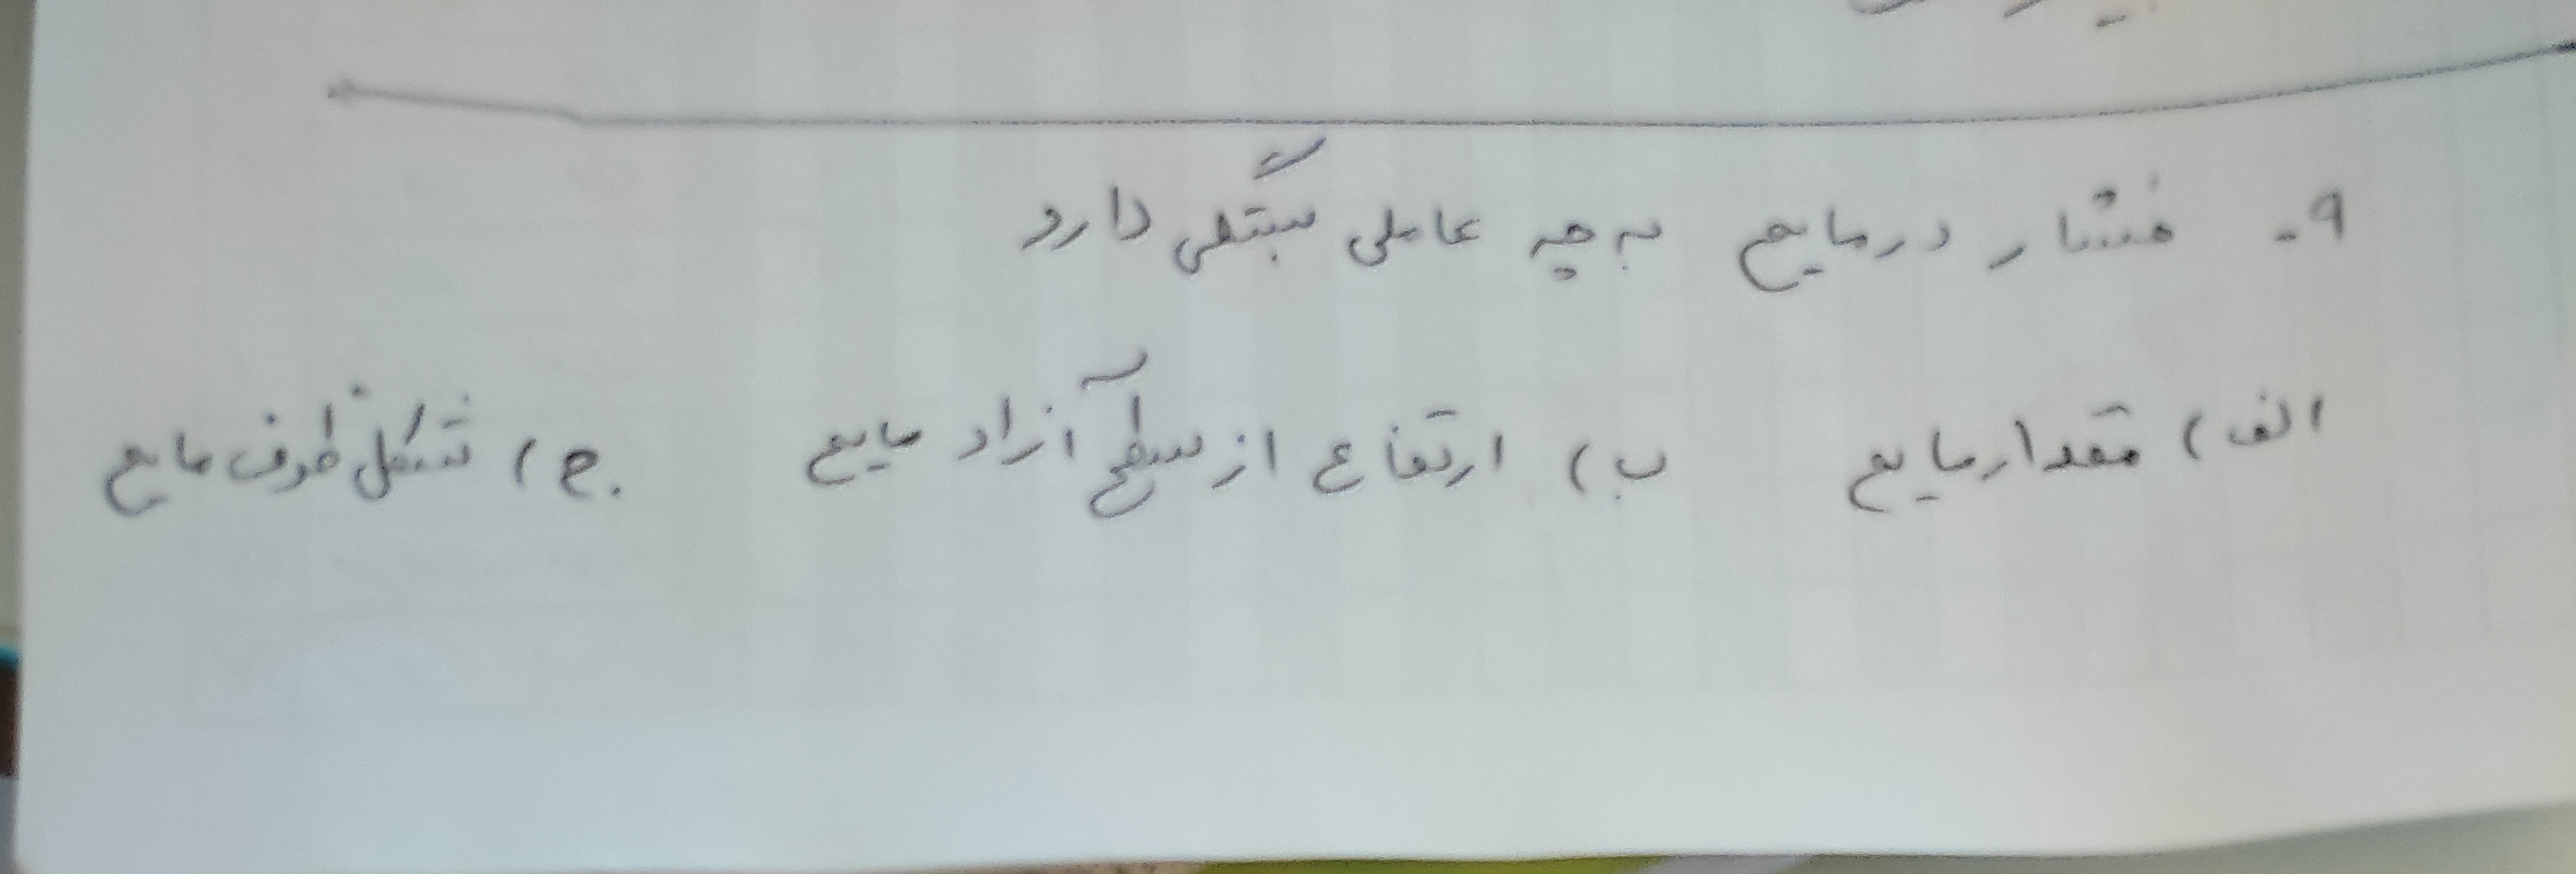 ۹- فشار در مایع به چه عاملی بستگی دارد
الف) مقدار مایع ب) ارتفاع از سطح آزاد مایع ج) شکل ظرف مایع